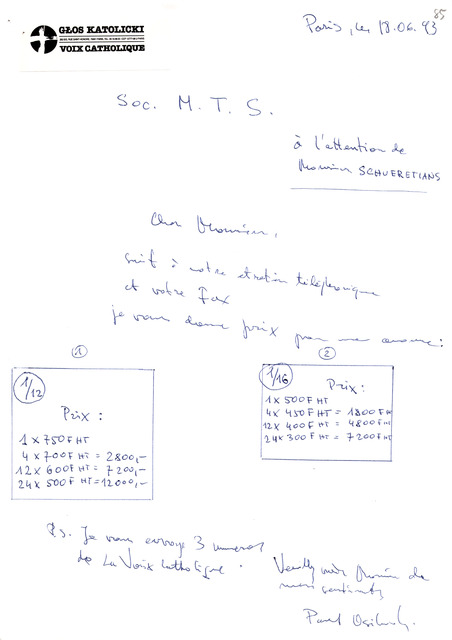 85
GŁOS KATOLICKI
VOIX CATHOLIQUE
Paris, le 18.06.93
Soc. M. T. S.
à l'attention de
Monsieur SCHUERETIANS
Cher Monsieur,
suit à notre etretien téléphonique
et votre Fax
je vous donne prix pour une annonce:
1
2
1/12
Prix :
1 x 750 F HT
4 x 700 F HT = 2800,-
12 x 600 F HT = 7200,-
24 x 500 F HT = 12000,-
1/16
Prix :
1 x 500 F HT
4 x 450 F HT = 1800 F HT
12 x 400 F HT = 4800 F HT
24 x 300 F HT = 7200 F HT
P.S. Je vous envoye 3 numeros
de La Voix Catholique.